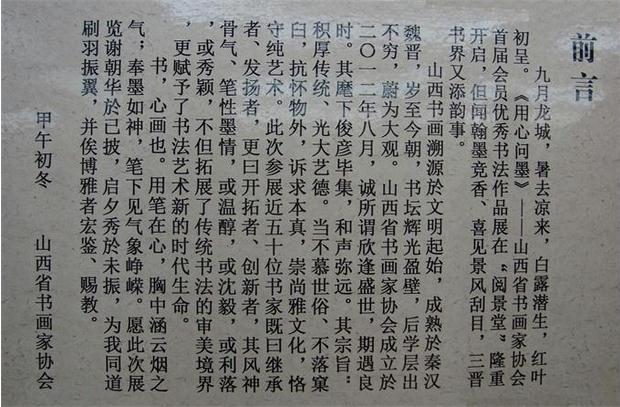 前言
九月龙城，暑去凉来，白露潜生，红叶
初呈。《用心问墨》——山西省书画家协会
首届会员优秀书法作品展在“阅景堂”隆重
开启，但闻翰墨竞香、喜见景风刮目，三晋
书界又添韵事。
山西书画溯源於文明起始，成熟於秦汉
魏晋，岁至今朝，书坛辉光盈壁，后学层出
不穷，蔚为大观。山西省书画家协会成立於
二〇一二年八月，诚所谓欣逢盛世，期遇良
时。其麾下俊彦毕集，和声弥远。其宗旨“
积厚传统、光大艺德。当不慕世俗、不落窠
臼，抗怀物外，诉求本真，崇尚雅文化，恪
守纯艺术。此次参展近五十位书家既曰继承
者、发扬者，更曰开拓者、创新者，其风神
骨气、笔性墨情，或温醇，或沈毅，或利落
，或秀颖，不但拓展了传统书法的审美境界
，更赋予了书法艺术新的时代生命。
书，心画也。用笔在心，胸中涵云烟之
气；奉墨如神，笔下见气象峥嵘。愿此次展
览谢朝华於已披，启夕秀於未振，为我同道
刷羽振翼，并俟博雅者宏鉴、赐教。
山西省书画家协会
甲午初冬